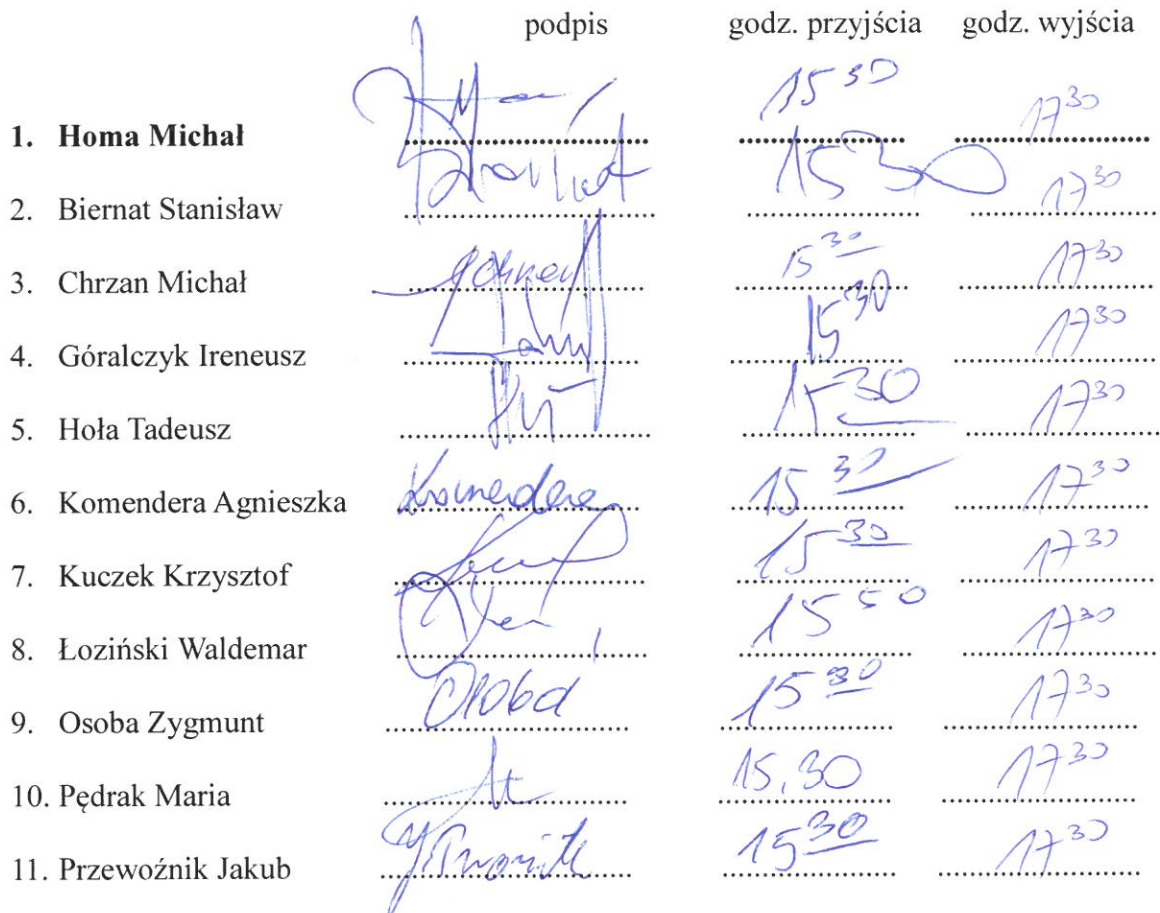 podpis godz. przyjścia godz. wyjścia
1. Homa Michał 15 30 17 30
2. Biernat Stanisław 15 30 17 30
3. Chrzan Michał 15 30 17 30
4. Góralczyk Ireneusz 15 30 17 30
5. Hoła Tadeusz 15 30 17 30
6. Komendera Agnieszka Komendera 15 30 17 30
7. Kuczek Krzysztof 15 30 17 30
8. Łoziński Waldemar 15 50 17 30
9. Osoba Zygmunt Osoba 15 30 17 30
10. Pędrak Maria 15.30 17 30
11. Przewoźnik Jakub 15 30 17 30